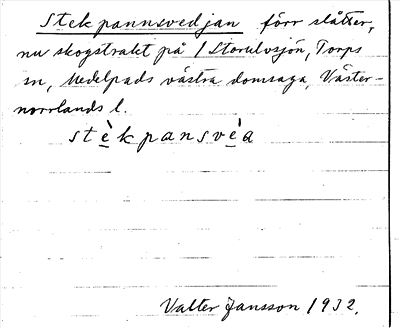 Stekpannsvedjan förr slåtter,
nu skogstrakt på 1 Storulvsjön, Torps
sn, Medelpads västra domsaga, Väster-
norrlands l.
stèkpansvèa
Valter Jansson 1932.